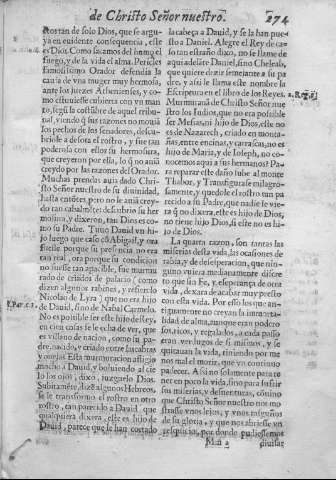 de Christo Señor nuestro. 274
Rostan de solo Dios, que se argu-
ya en euidente consequencia, este
es Dios. Como sacamos del humo el
fuego, y de la vida el alma. Pericles
famosissimo Orador defendia la
causa de vna muger muy hermosa,
ante los juezes Athenienses, y co-
mo estuuiesse cubierta con vn man-
to, segu la costubre de aquel tribu-
nal, viendo q sus razones no mouiã
los pechos de los senadores, descu-
briole a desora el rostro, y fue tan
poderosa con ellos su hermosura,
que creyeron por ella, lo q no auiã
creydo por las razones del Orador.
Muchas prendas auia dado Chri-
sto Señor nuestro de su diuinidad,
hasta entõces, pero no le auiã creydo
tan cabalmẽte: descubrio su her
mosura, y dixeron, tan Dios es co-
mo su Padre. Tuuo Dauid vn hi-
jo luego que caso cõ Abigail, y era
fuesse porque su presencia no era
tan real, ora porque su condicion
no fuesse tan apacible, fue murmu
rado de criados de palacio (como
dizen algunos rabinos, y refierelo
Nicolao de Lyra) que no era hijo
1.Par.c.3. de Dauid, sino de Nabal Carmelo.
No es possible ser este hijo del Rey,
en cien cosas se le echa de ver, que
es villano de nacion, como su pa-
dre, nacido, y criado entre las cabras
y ouejas. Esta murmuracion afligio
mucho a Dauid, y boluiendo al cie
lo los ojos, dixo, juzgarelo Dios.
Subitamẽte, dizẽ algunos Hebreos,
se le transformo el rostro en otro
rostro, tan parecido a Dauid, que
qualquiera dixera, este es hijo de
Dauid, parece que le han cortado
la cabeça a Dauid, y se la han pue-
sto a Daniel. Alegre el Rey de ca-
so tan estraño dixo, no se llame de
aqui adelãte Daniel, sino Cheleab,
que quiere dezir semejante a su pa
dre, y assi le llama este nombre la
Escriptura en el libro de los Reyes. 2.Reg.3.
Murmurauã de Christo Señor nue
stro los Iudios, que no era possible
ser Messias, ni hijo de Dios, este no
es de Nazareth, criado en monta-
ñas, entre encinas, y carrascas, no es
hijo de Maria, y de Ioseph, no co-
nocemos aqui a sus hermanos? Pa-
ra reparar este daño sube al monte
Thabor, y Transfigurase milagro-
samente, y quedole el rostro tan pa
recido a su Padre, que nadie le vie-
ra q no dixera, este es hijo de Dios,
no tiene hijo Dios, si este no es hi-
jo de Dios.
La quarta razon, son tantas las
miserias desta vida, las ocasiones de
rabia, y de desesperacion, que nin-
guno viuiera medianamente discre
to que sin Fe, y esperança de otra
vida, dexara de acabar muy presto
con esta vida. Por esso los que an-
tiguamente no creyan la inmorta-
lidad de alma, aunque eran podero
sos, ricos, y regalados, a cada passo
eran verdugos de si mismos, y se
quitauan la vida, teniendo por me
nos mal el morir, que viuir con tinuo
padecer. Assi no solamente para te
ner en poco la vida, sino para sufrir
sus miserias, y desuenturas, cõuino
que Christo Señor nuestro nos mo
strasse vnos lejos, y vnos rasguños
de su gloria, y que nos abriesse vn
resquicio, por donde pudiessemos
Mm 2 diuisar